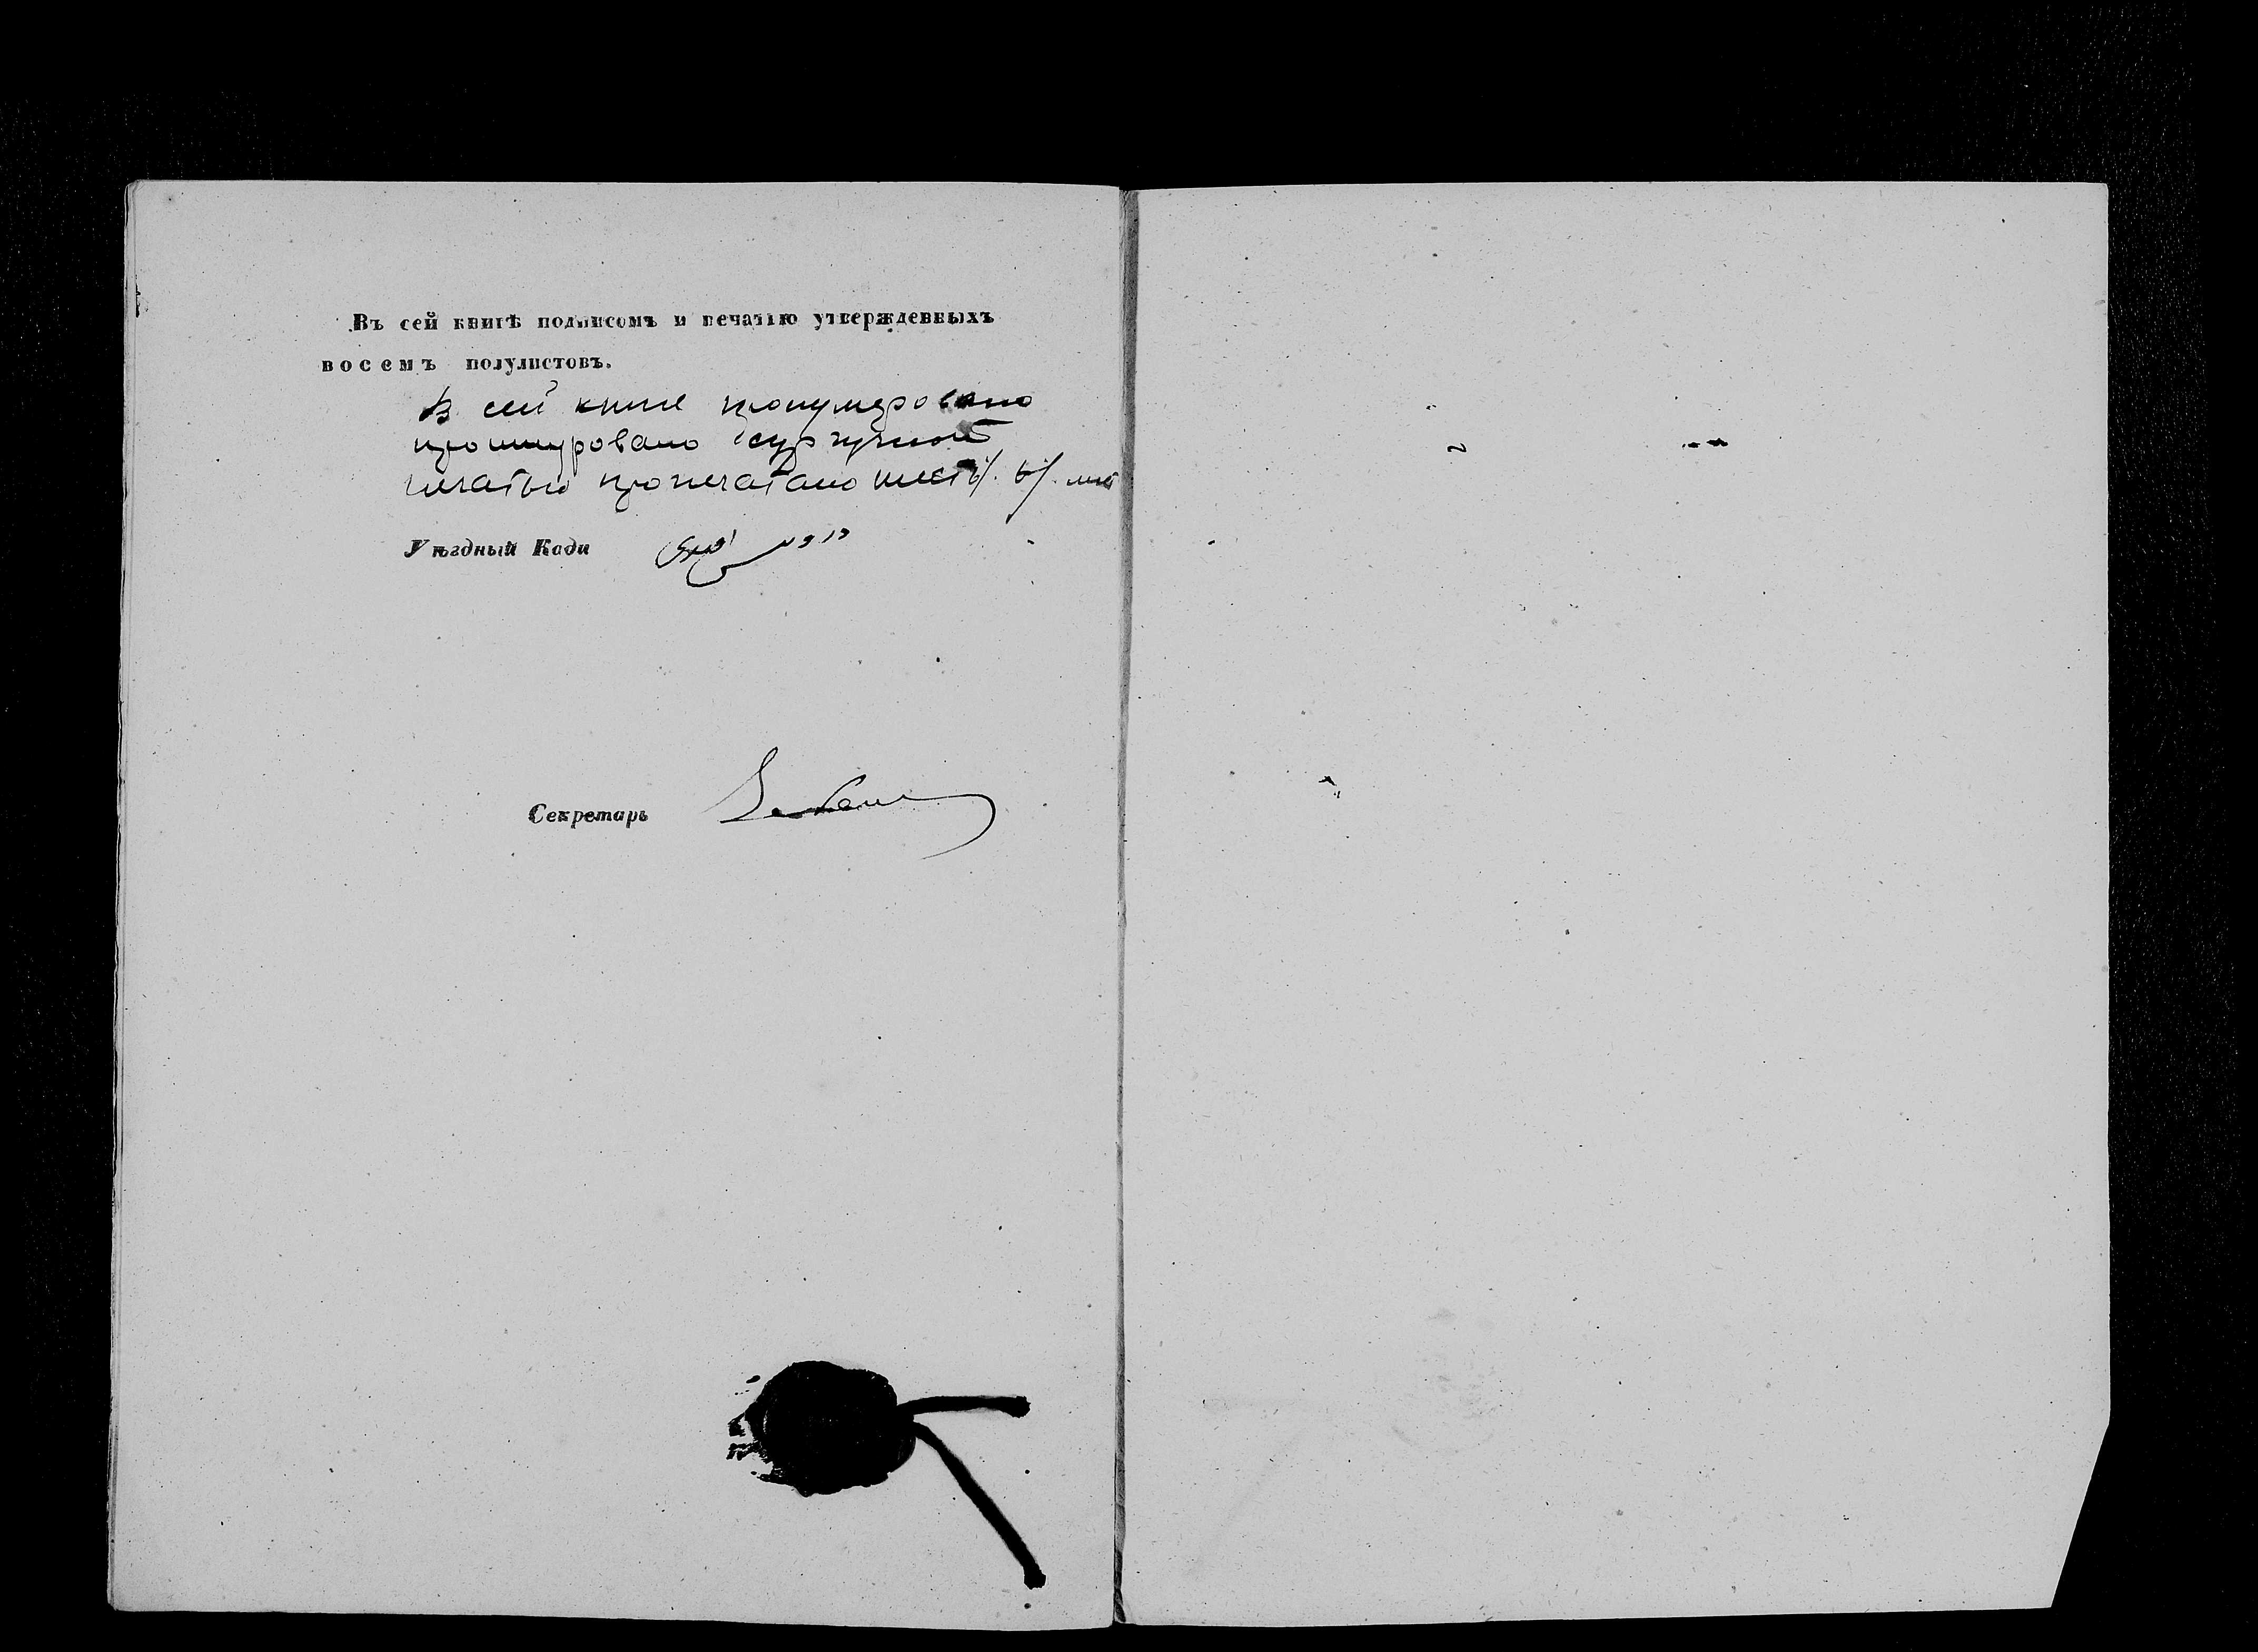 Въ сей книгѣ подписомъ и печатію утвержденныхъ
восемъ полулистовъ.
В сей книге пронумеровано
прошнуровано сургучной
печатью пропечатано шесть /6/ лис
Уѣздный Кади
Секретарь